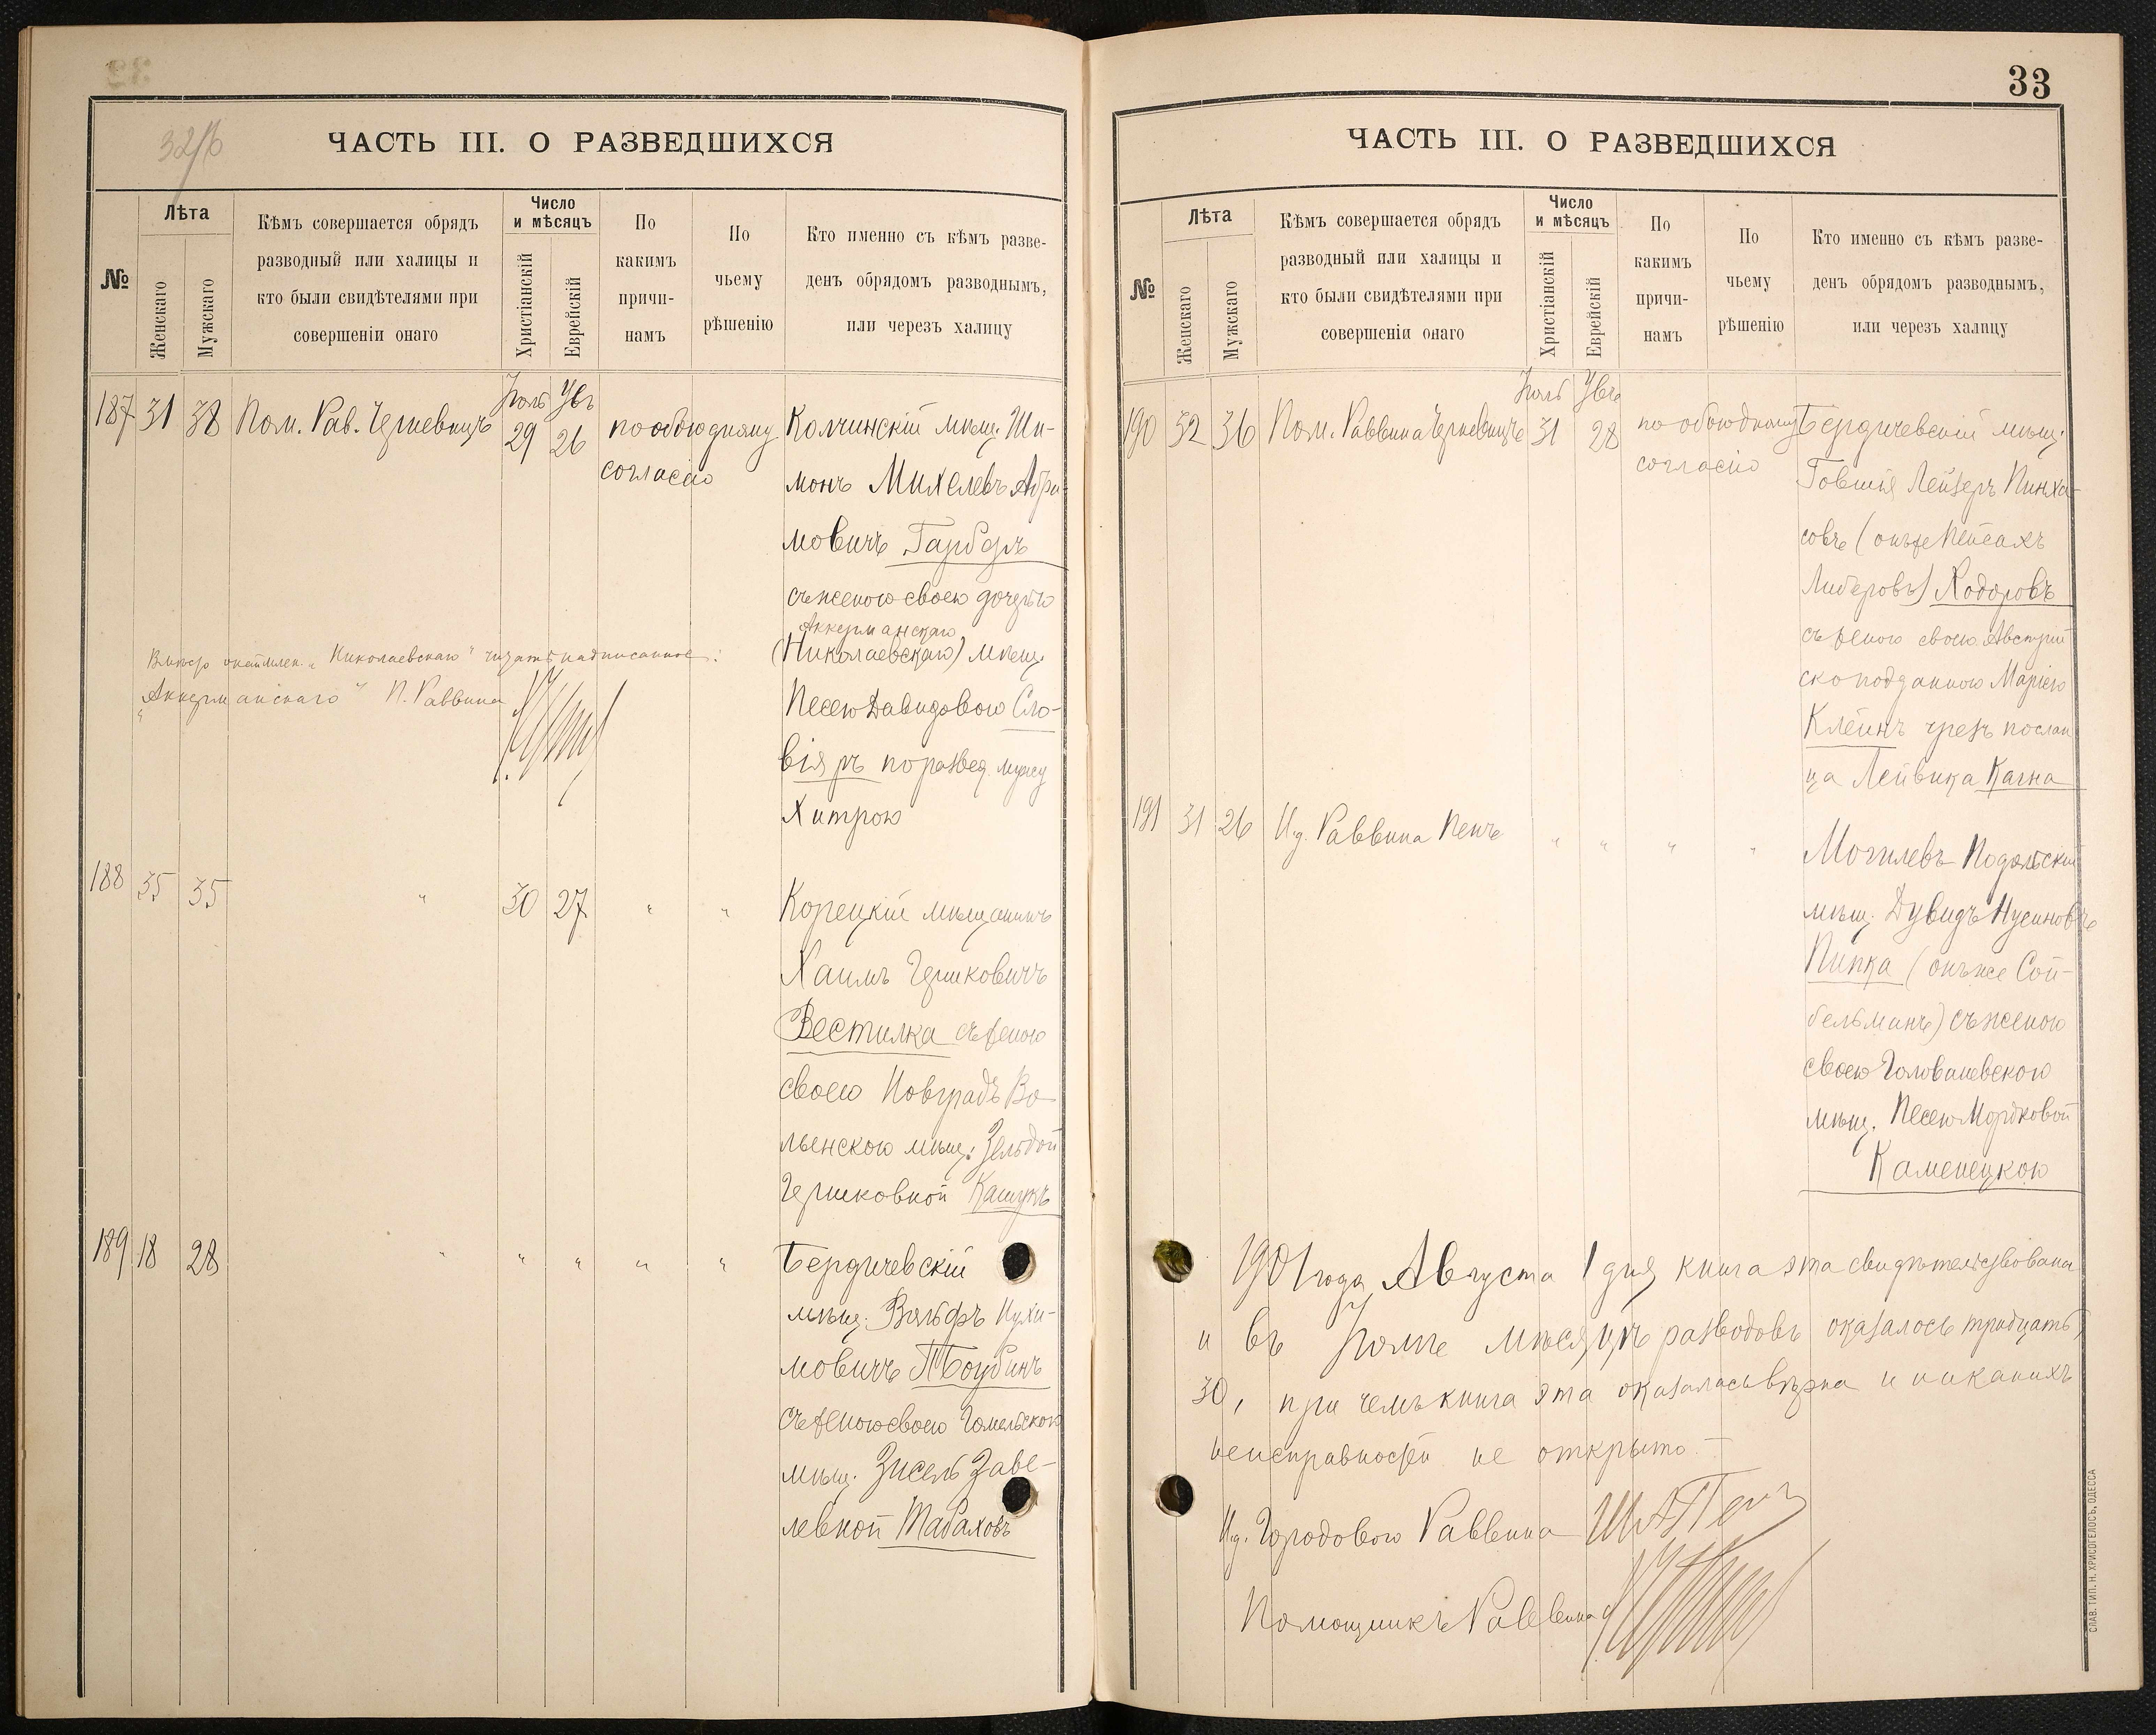 32/б
ЧАСТЬ III. О РАЗВЕДШИХСЯ
№
Лѣта
Женскаго
Мужскаго
Кѣмъ совершается обрядъ
разводный или халицы и
кто были свидѣтелями при
совершеніи онаго
Число
и мѣсяцъ
Христіанскій
Еврейскій
По
какимъ
причи-
намъ
По
чьему
рѣшенію
Кто именно съ кѣмъ разве-
денъ обрядомъ разводнымъ,
или черезъ халицу
187 31 38 Пом. Рав. Черневицъ Іюль 29 Увъ 26 по обоюдному
согласію
Колчинскій мѣщ. Ши-
монъ Михелевъ Абра-
мовичъ Гарберъ
съ женою своею дочерью
Аккерманскаго
(Николаевскаго) мѣщ.
Песею Давидовою Сло-
віяръ по развед. мужу
Хитрою
Вмѣсто окаймлен. „Николаевскаго" читать надписанное:
„Аккерманскаго" П. Раввина
188 35 35 " 30 27 " "
Корецкій мѣщанинъ
Хаимъ Гершковичъ
Вестилка съ женою
своею Новградъ Во-
лынскою мѣщ. Зельдой
Гершковной Кашукъ
189 18 28 " " " " "
Бердичевскій
мѣщ. Вольфъ Нухи-
мовичъ
съ женою своею Гомельскою
мѣщ. Зисель Заве-
левной Табаховъ
33
ЧАСТЬ III. О РАЗВЕДШИХСЯ
№
Лѣта
Женскаго
Мужскаго
Кѣмъ совершается обрядъ
разводный или халицы и
кто были свидѣтелями при
совершеніи онаго
Число
и мѣсяцъ
Христіанскій
Еврейскій
По
какимъ
причи-
намъ
По
чьему
рѣшенію
Кто именно съ кѣмъ разве-
денъ обрядомъ разводнымъ,
или черезъ халицу
190 32 36 Пом. Раввина Черневицъ Іюль 31 Увъ 28 по обоюдному
согласію
Бердичевскій мѣщ.
Говшія Лейзеръ Пинха-
совъ (онъ же Пейсахъ
Либеровъ) Ходоровъ
съ женою своею Австрій
скоподданною Маріею
Клейнъ чрезъ послан
ца Лейвика Кагна
191 31 26 И.д. Раввина Пенъ " " " "
Могилевъ Подольскій
мѣщ. Дувидъ Нусиновъ
Пипка (онъ же Сой-
бельманъ) съ женою
своею Голованевскою
мѣщ. Песею Мордковой
Каменецкою
1901 года Августа 1 дня книга эта свидѣтельствована
и въ Іюлѣ мѣсяцѣ разводовъ оказалось тридцать,
30, при чемъ книга эта оказалась вѣрна и никакихъ
неисправностей не открыто.
И.д. Городового Раввина Ш. А. Пенъ
Помощникъ Раввина
СЛАВ. ТИП. Н. ХРИСОГЕЛОСЪ, ОДЕССА